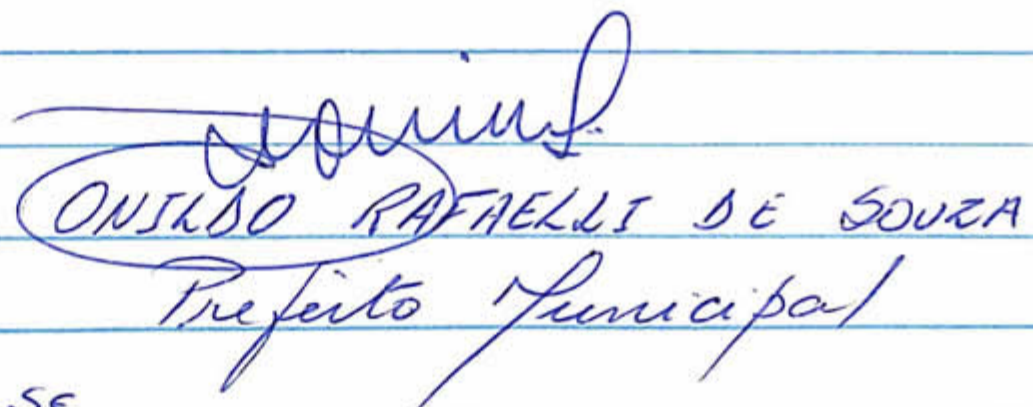 ONILDO RAFAELLI DE SOUZA
Prefeito Municipal
SE